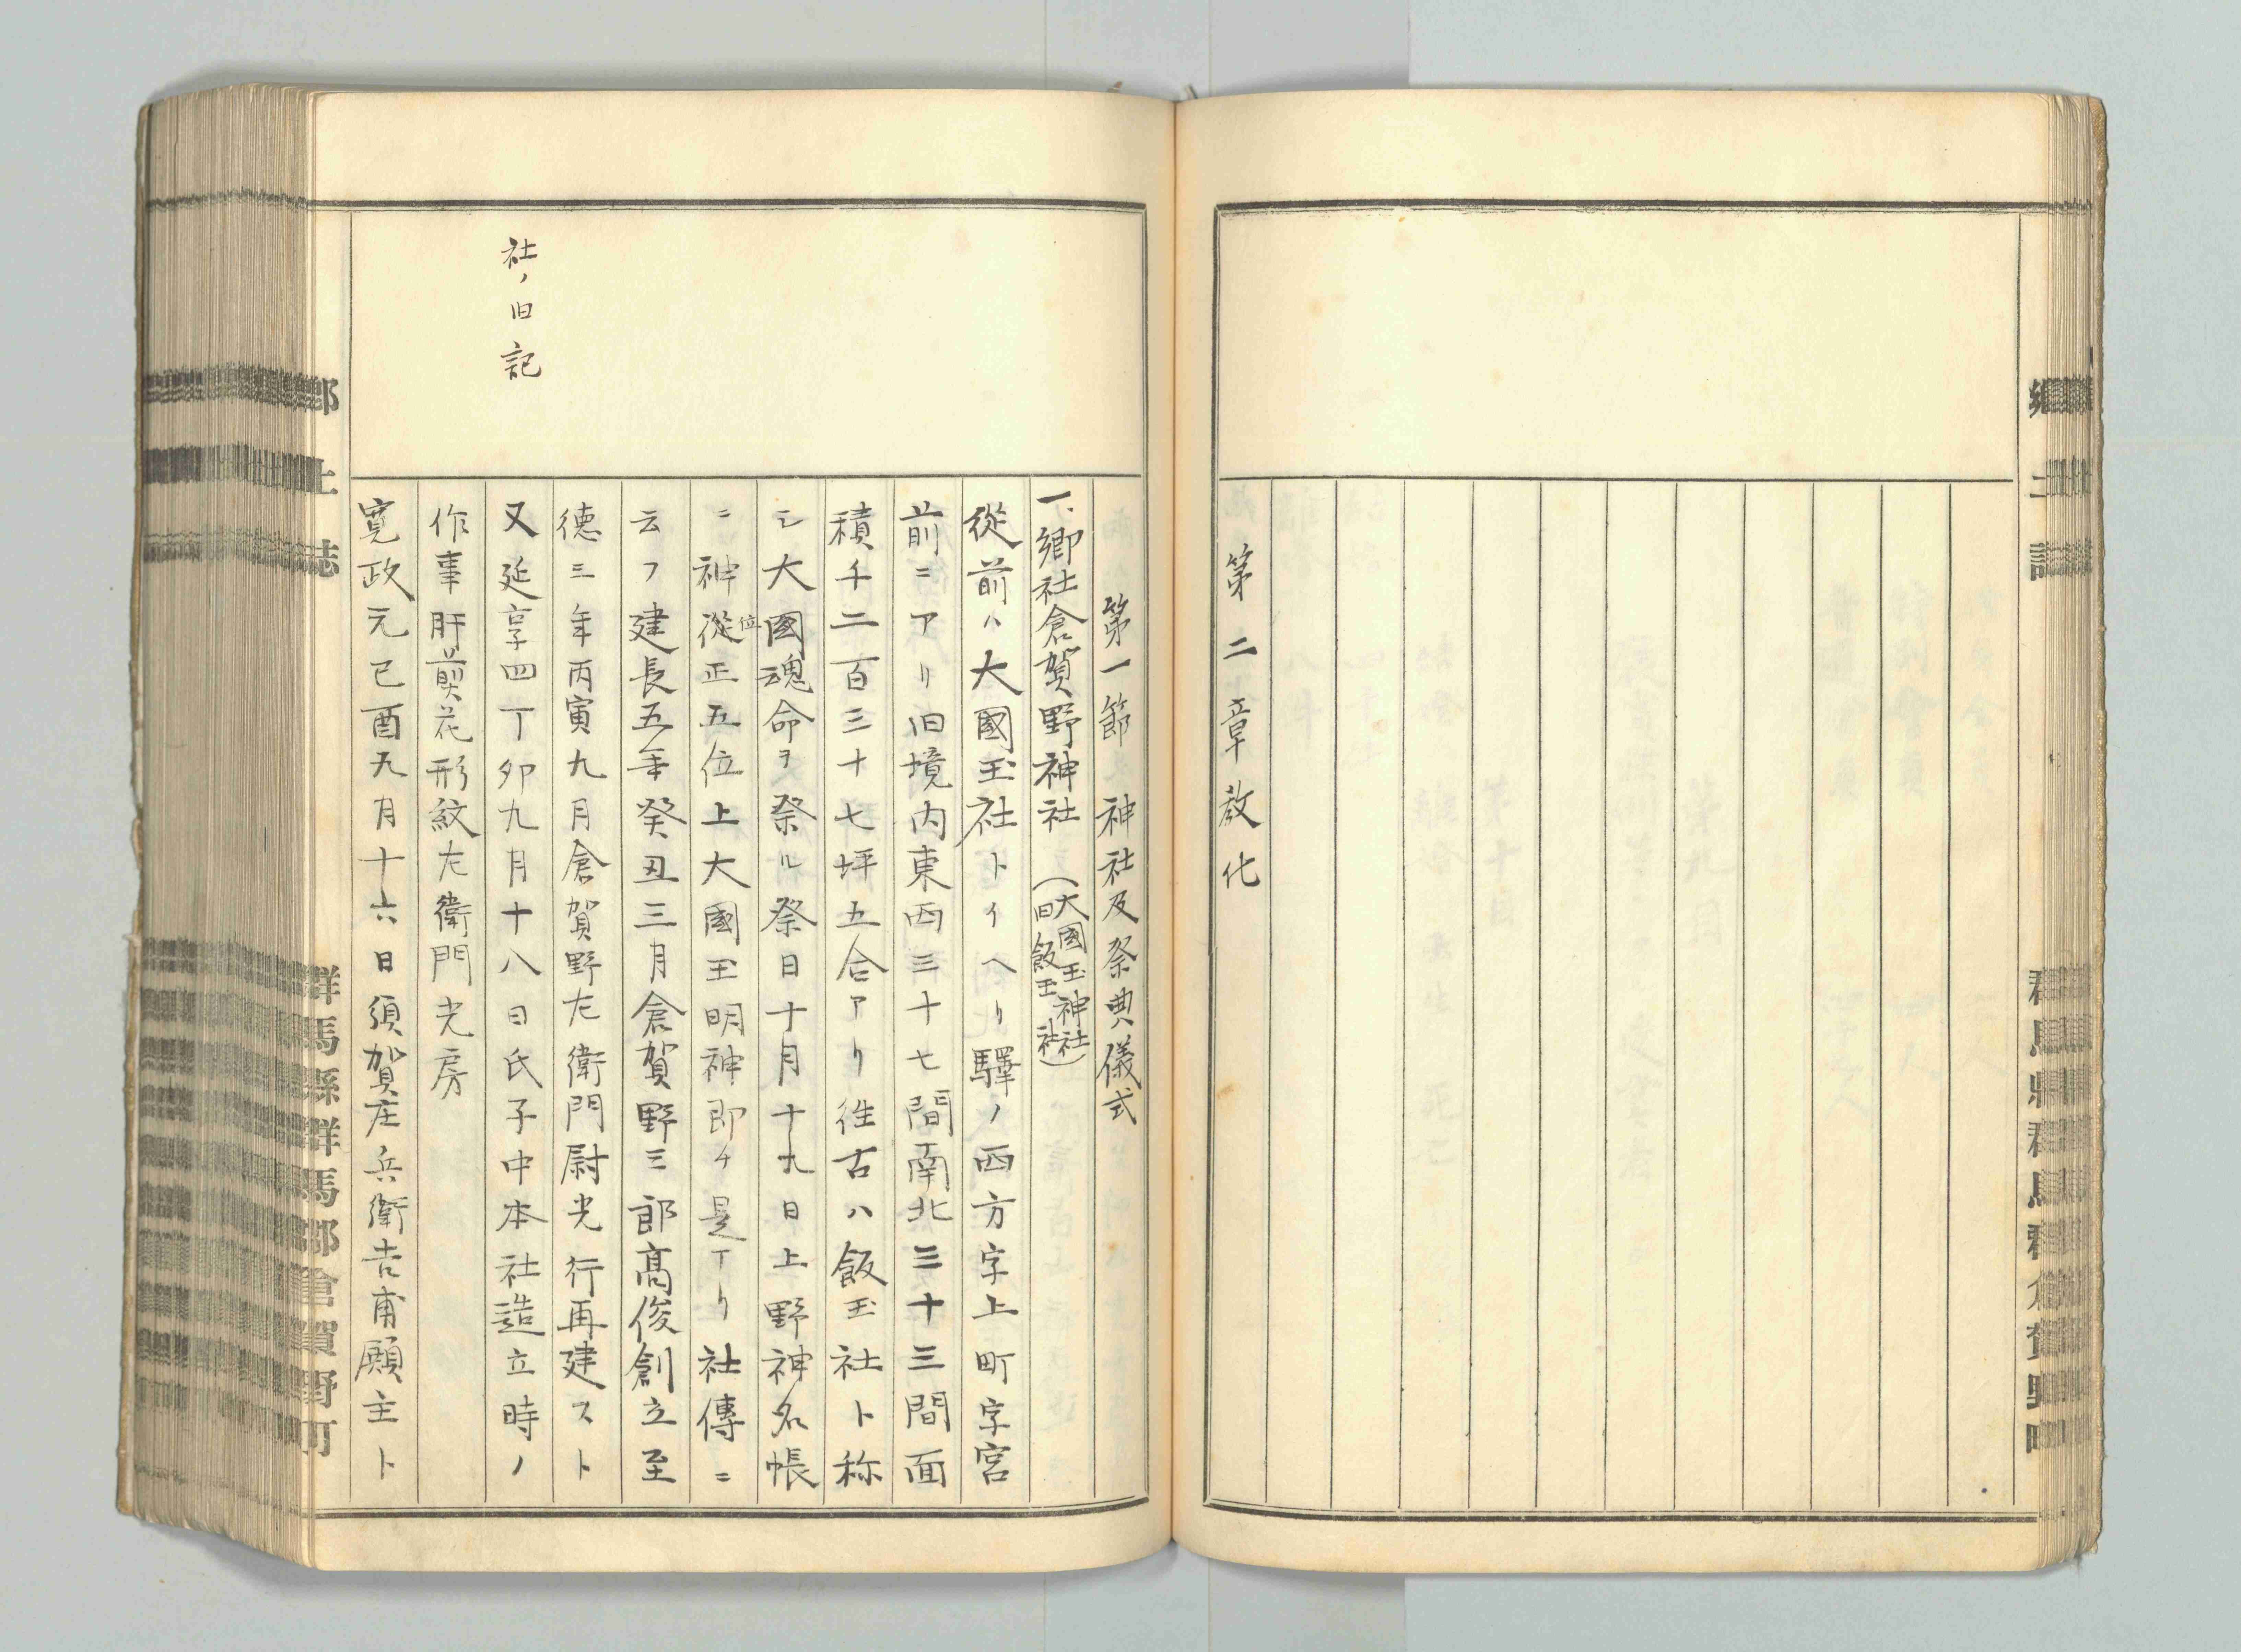 第二章 教化
第一節 神社及祭典儀式
一、郷社倉賀野神社(大國玉神社 旧飯玉社)
從前ハ大國玉社トイヘリ驛ノ西方字上町字宮
前ニアリ旧境内東西三十七間南北三十三間面
積千二百三十七坪五合アリ徃古ハ飯玉社ト称
シ大國魂命ヲ祭ル祭日十月十九日上野神名帳
ニ神從位正五位上大國玉明神即チ是アリ社傳ニ
云フ建長五年癸丑三月倉賀野三郎高俊創立至
徳三年丙寅九月倉賀野左衛門尉光行再建スト
社ノ旧記
又延享四丁卯九月十八日氏子中本社造立時ノ
作事肝煎花形紋左衛門光房
寛政元己酉九月十六日須賀庄兵衛吉甫願主ト
郷土誌
群馬縣群馬郡倉賀野町